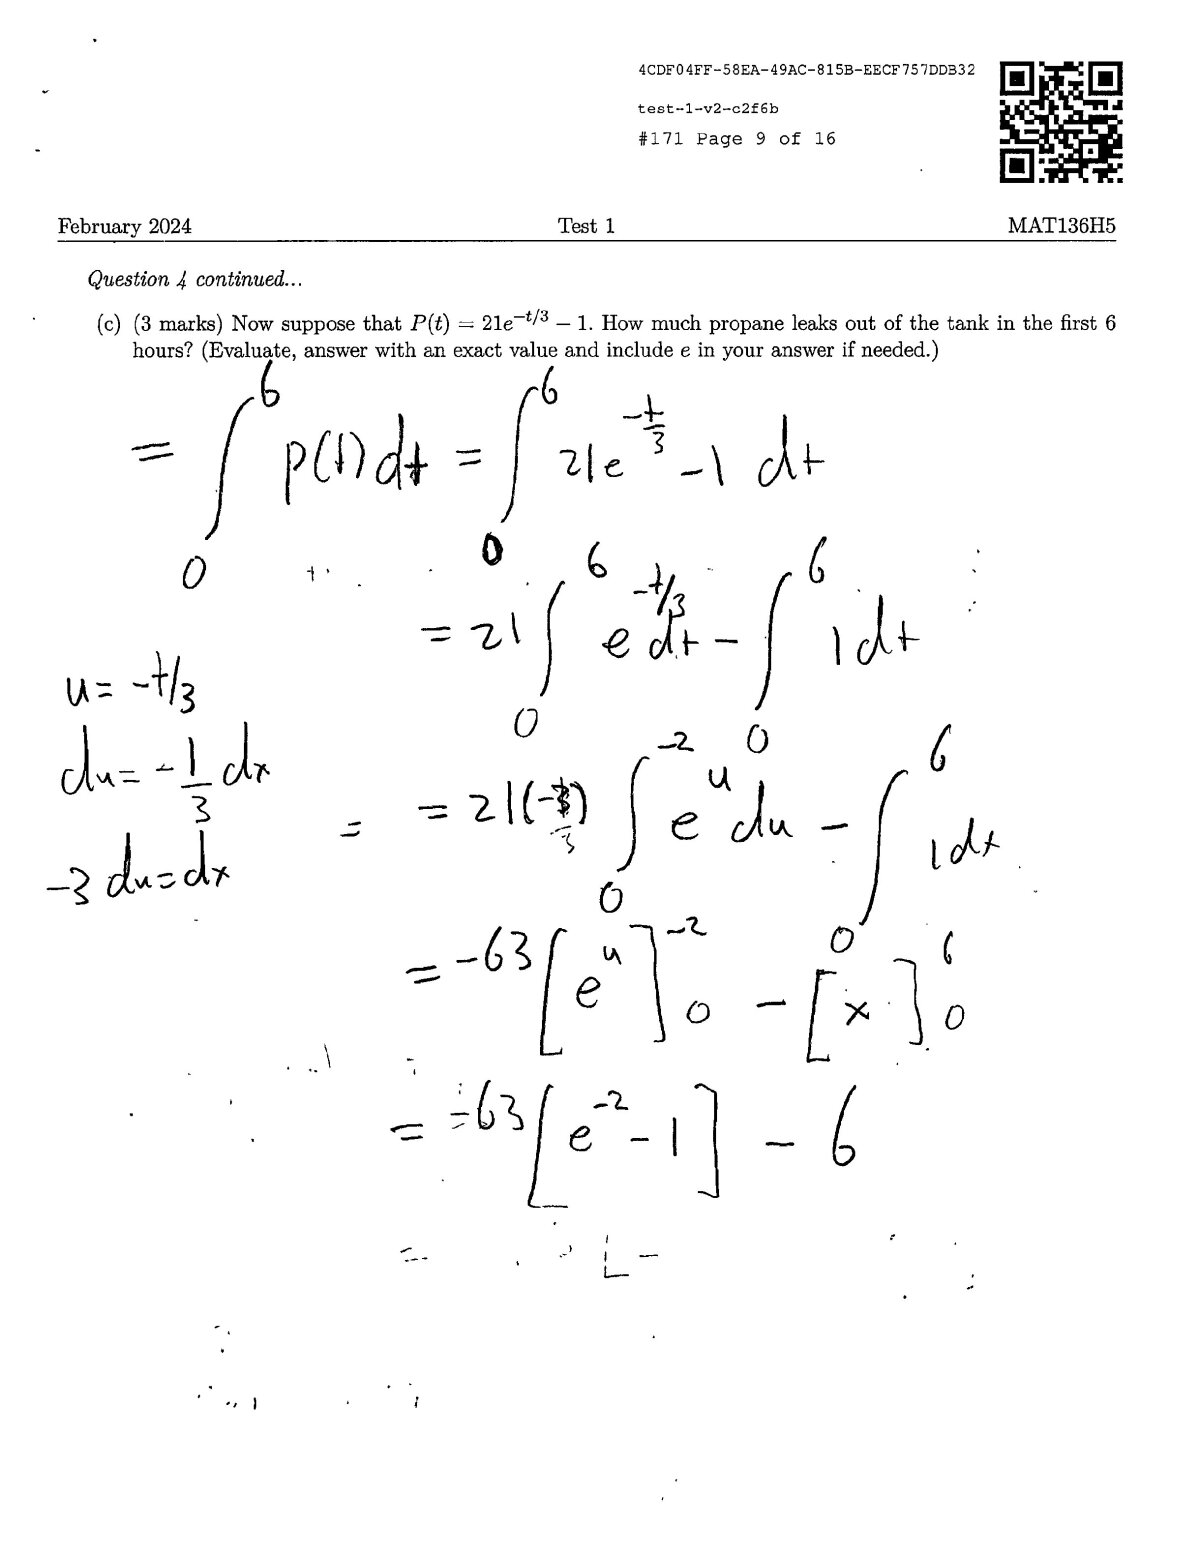 4CDF04FF-58EA-49AC-815B-EECF757DDB32
test-1-v2-c2f6b
#171 Page 9 of 16
February 2024 Test 1 MAT136H5
Question 4 continued...
(c) (3 marks) Now suppose that P(t) = 21e^{-t/3} − 1. How much propane leaks out of the tank in the first 6
hours? (Evaluate, answer with an exact value and include e in your answer if needed.)
= ∫_0^6 p(t) dt = ∫_0^6 21e^{-t/3} - 1 dt
= 21 ∫_0^6 e^{-t/3} dt - ∫_0^6 1 dt
u = -t/3
du = -1/3 dx
-3 du = dx
= = 21(-3) ∫_0^{-2} e^u du - ∫_0^6 1 dx
= -63 [e^u]_0^{-2} - [x]_0^6
= -63 [e^{-2} - 1] - 6